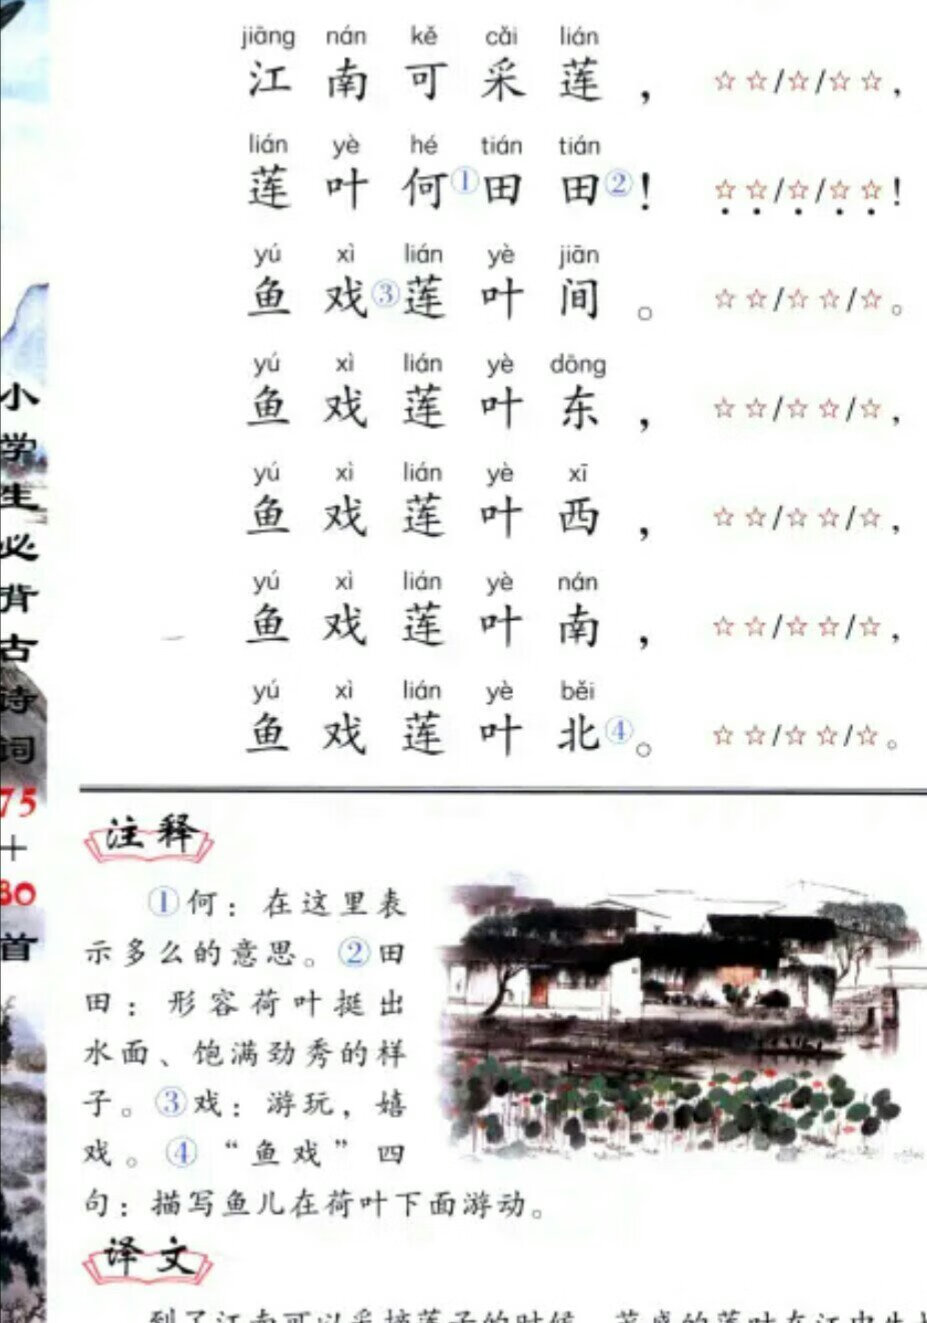 jiāng nán kě cǎi lián
江南可采莲， ☆☆/☆/☆☆，
lián yè hé tián tián
莲叶何①田田②！ ☆☆/☆/☆☆！
yú xì lián yè jiān
鱼戏③莲叶间。 ☆☆/☆☆/☆。
yú xì lián yè dōng
鱼戏莲叶东， ☆☆/☆☆/☆，
yú xì lián yè xī
鱼戏莲叶西， ☆☆/☆☆/☆，
yú xì lián yè nán
鱼戏莲叶南， ☆☆/☆☆/☆，
yú xì lián yè běi
鱼戏莲叶北④。 ☆☆/☆☆/☆。
小学生必背古诗词75+80首
注释
①何：在这里表
示多么的意思。②田
田：形容荷叶挺出
水面、饱满劲秀的样
子。③戏：游玩，嬉
戏。④“鱼戏”四
句：描写鱼儿在荷叶下面游动。
译文
到了江南可以采摘莲子的时候，茂盛的莲叶在江中生长